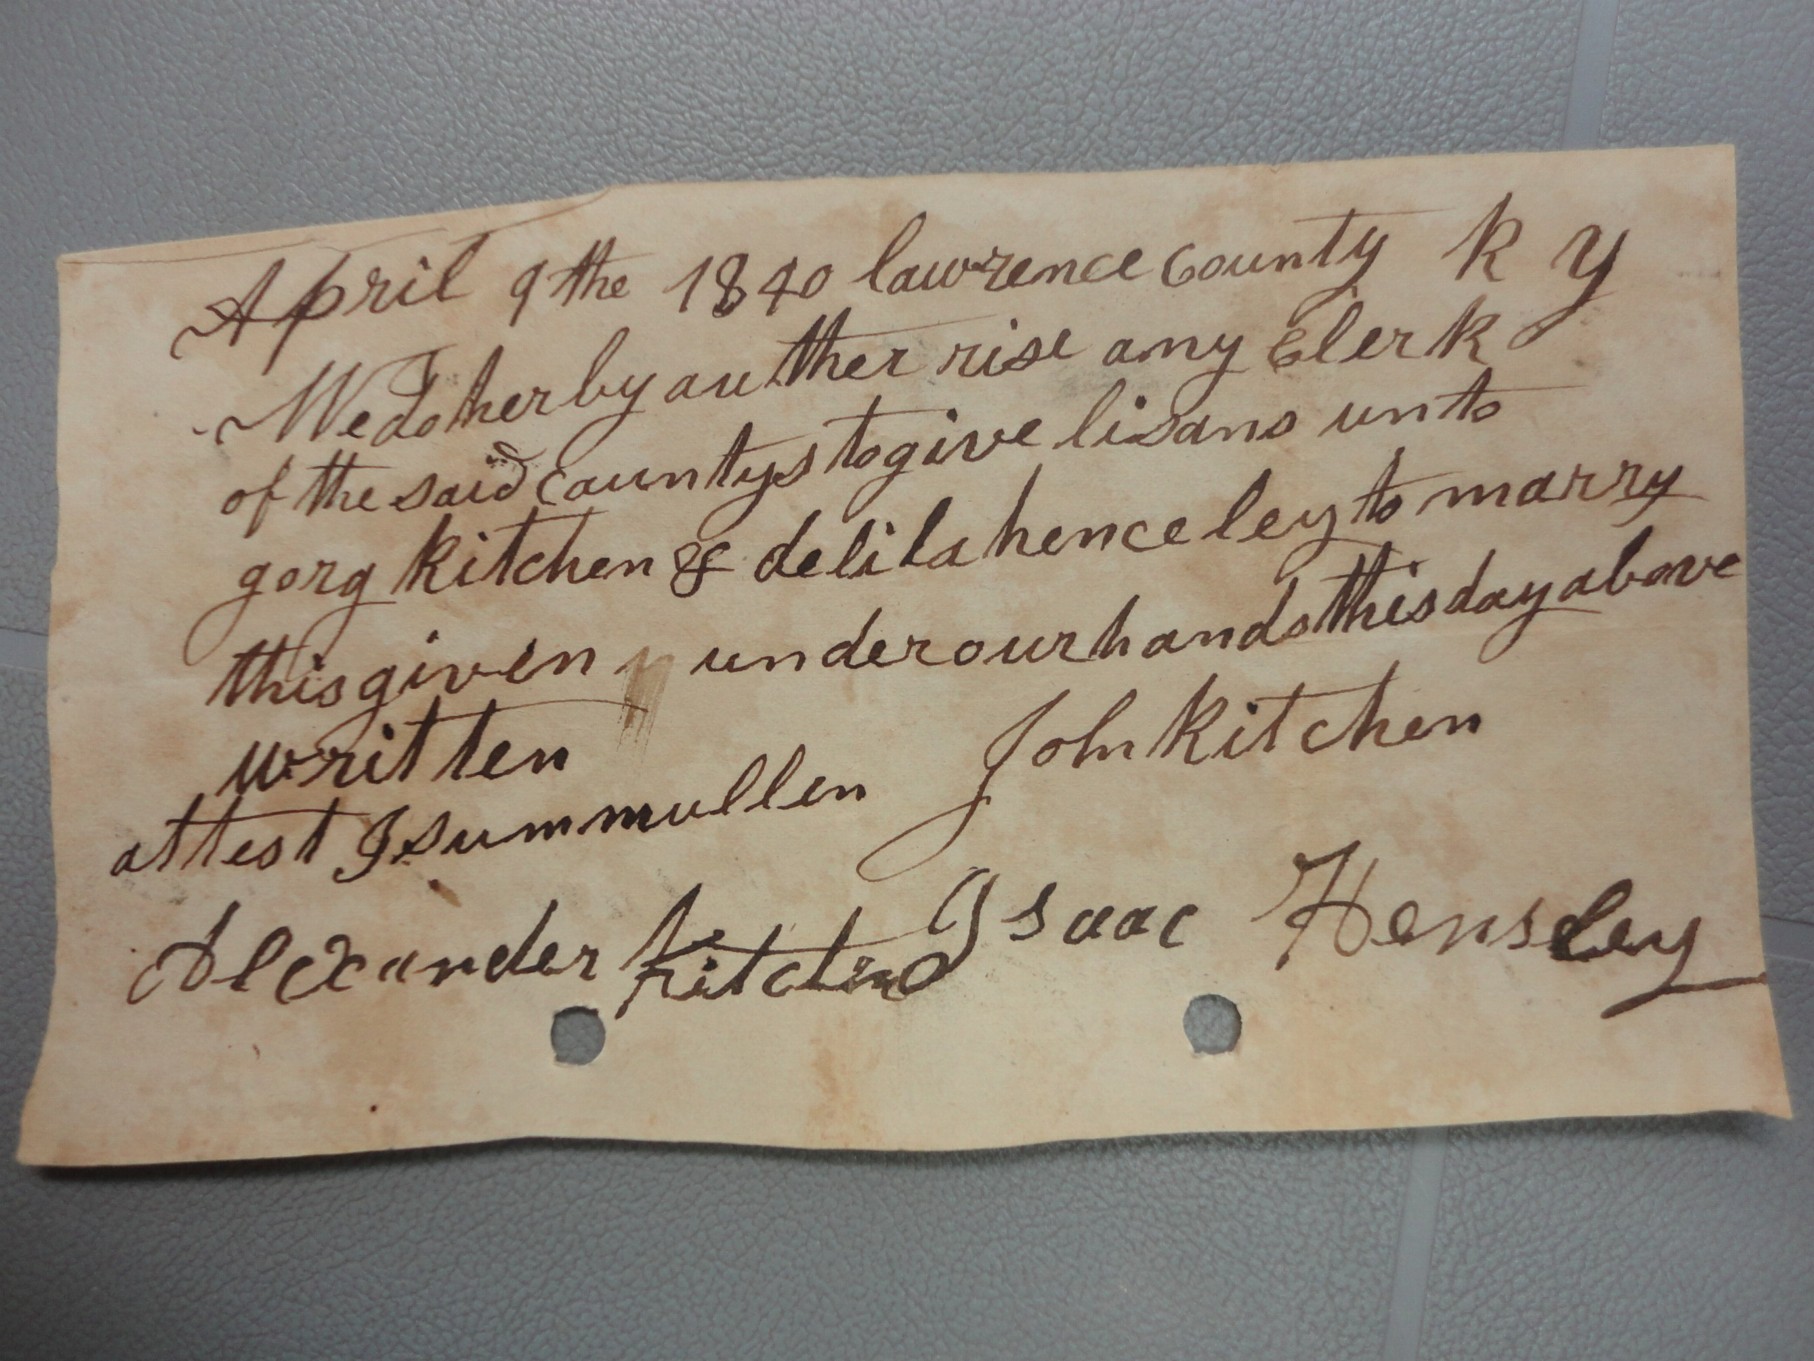 April 9 the 1840 lawrence County K y
We do herby au ther rise any Clerk
of the said countys to give lisans unto
gorg kitchen & delila henceley to marry
this given under our hands this day above
written
John Kitchen
attest J summullen
Isaac Hensley
Alexander Kitchen